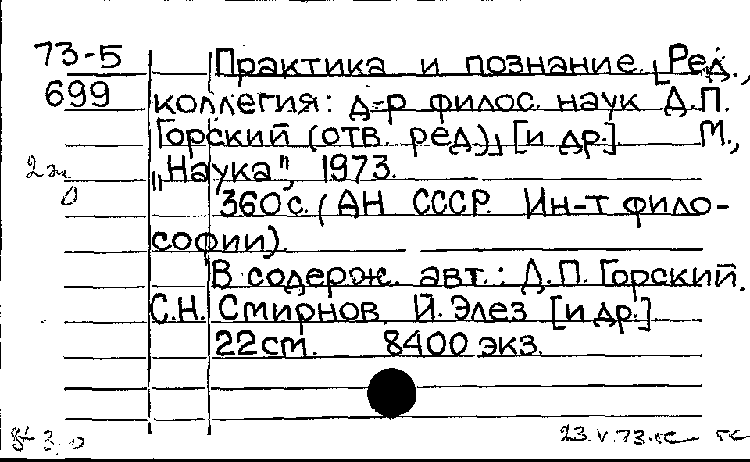 73-5 Практика и познание. [Ред.,
699 коллегия: д-р филос. наук Д.П.
Горский (отв. ред.)] [и др.] М.,
„Наука", 1973.
360 с. (АН СССР. Ин-т фило-
софии).
В содерж. авт.: Д.П. Горский.
С.Н. Смирнов, Й. Элез [и др.]
22 см. 8400 экз.
23.V.73.